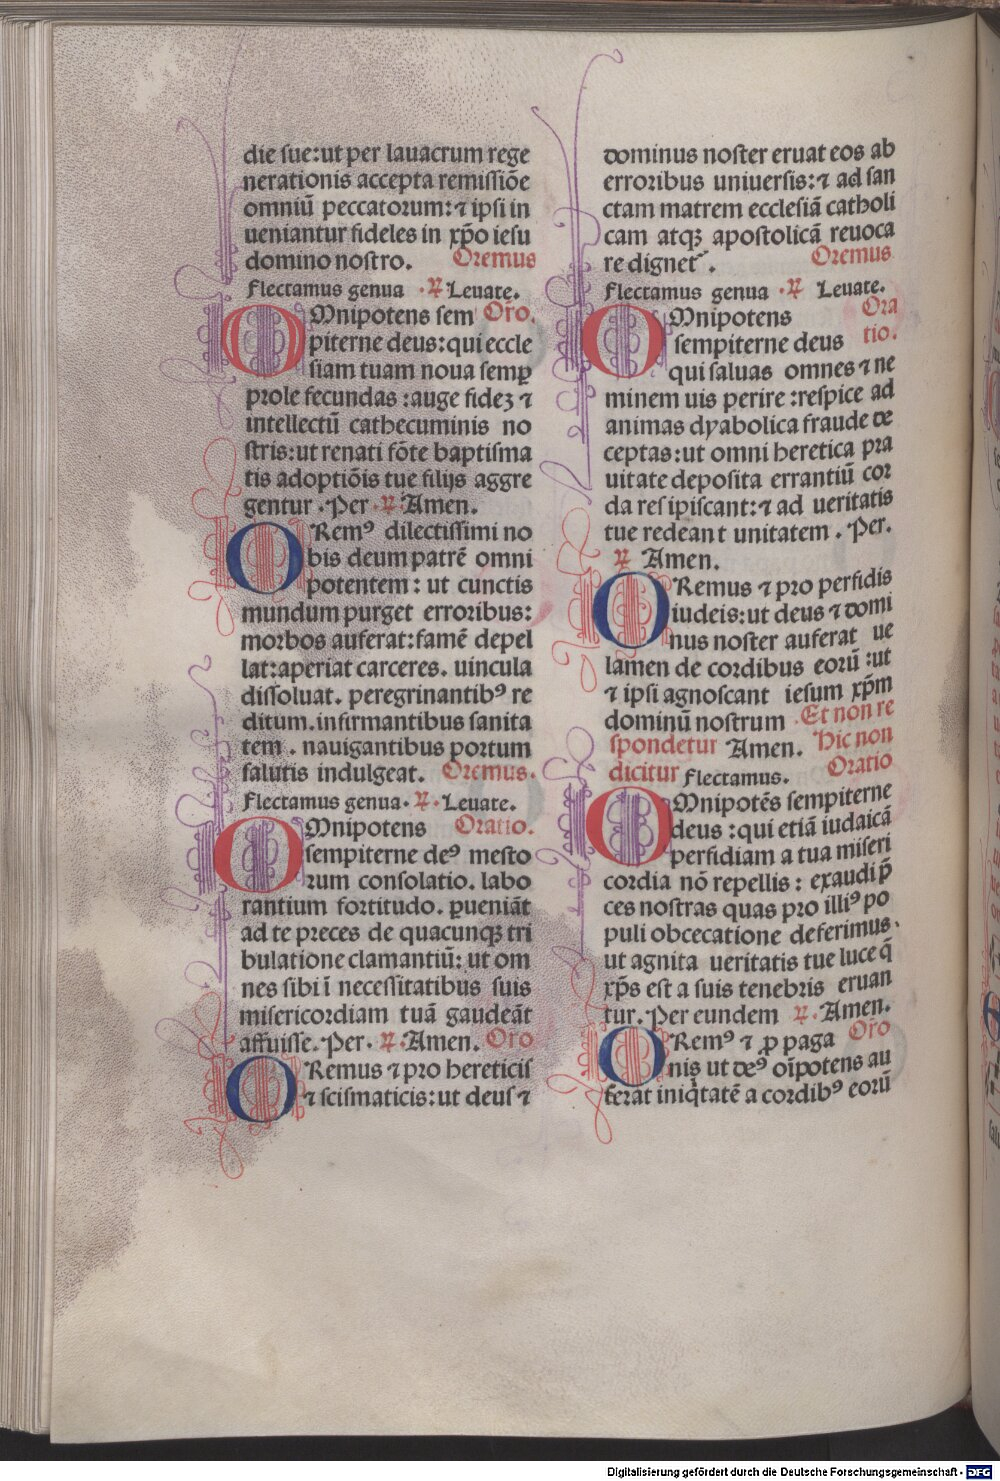 die sue:ut per lauacrum rege
nerationis accepta remissiōe
omniū peccatorum:⁊ ipsi in
ueniantur fideles in xp̄o iesu
domino nostro. Oremus
Flectamus genua .℟ Leuate.
OMnipotens sem Or̄o.
piterne deus:qui eccle
siam tuam noua semꝑ
prole fecundas :auge fideꝫ ⁊
intellectū cathecuminis no
stris:ut renati fōte baptisma
tis adoptiōis tue filijs aggre
gentur . Per .℟. Amen.
ORemꝰ dilectissimi no
bis deum patrē omni
potentem : ut cunctis
mundum purget erroribus:
morbos auferat:famē depel
lat:aperiat carceres. uincula
dissoluat. peregrinantibꝰ re
ditum.infirmantibus sanita
tem . nauigantibus portum
salutis indulgeat. Oremus.
Flectamus genua. ℟. Leuate.
OMnipotens Oratio.
sempiterne deꝰ mesto
rum consolatio. labo
rantium fortitudo. ꝑueniāt
ad te preces de quacunqꝫ tri
bulatione clamantiū: ut om
nes sibi ī necessitatibus suis
misericordiam tuā gaudeāt
affuisse. Per. ℟. Amen. Or̄o
ORemus ⁊ pro hereticis
⁊ scismaticis:ut deus ⁊
dominus noster eruat eos ab
erroribus uniuersis:⁊ ad san
ctam matrem ecclesiā catholi
cam atqꝫ apostolicā reuoca
re dignet᷑ . Oremus
Flectamus genua .℟ Leuate.
OMnipotens Ora
sempiterne deus tio.
qui saluas omnes ⁊ ne
minem uis perire :respice ad
animas dyabolica fraude de
ceptas:ut omni heretica pra
uitate deposita errantiū cor
da resipiscant:⁊ ad ueritatis
tue redeant unitatem . Per.
℟ Amen.
ORemus ⁊ pro perfidis
iudeis:ut deus ⁊ domi
nus noster auferat ue
lamen de cordibus eorū :ut
⁊ ipsi agnoscant iesum xp̄m
dominū nostrum .Et non re
spondetur Amen. Hic non
dicitur Flectamus. Oratio
OMnipotēs sempiterne
deus :qui etiā iudaicā
perfidiam a tua miseri
cordia nō repellis : exaudi p̄
ces nostras quas pro illiꝰ po
puli obcecatione deferimus.
ut agnita ueritatis tue luce q̄
xp̄s est a suis tenebris eruan
tur. Per eundem ℟. Amen.
ORemꝰ ⁊ ꝓ paga Or̄o
nis ut deꝰ oīpotens au
ferat iniq̇tatē a cordibꝰ eorū
Digitalisierung gefördert durch die Deutsche Forschungsgemeinschaft - DFG